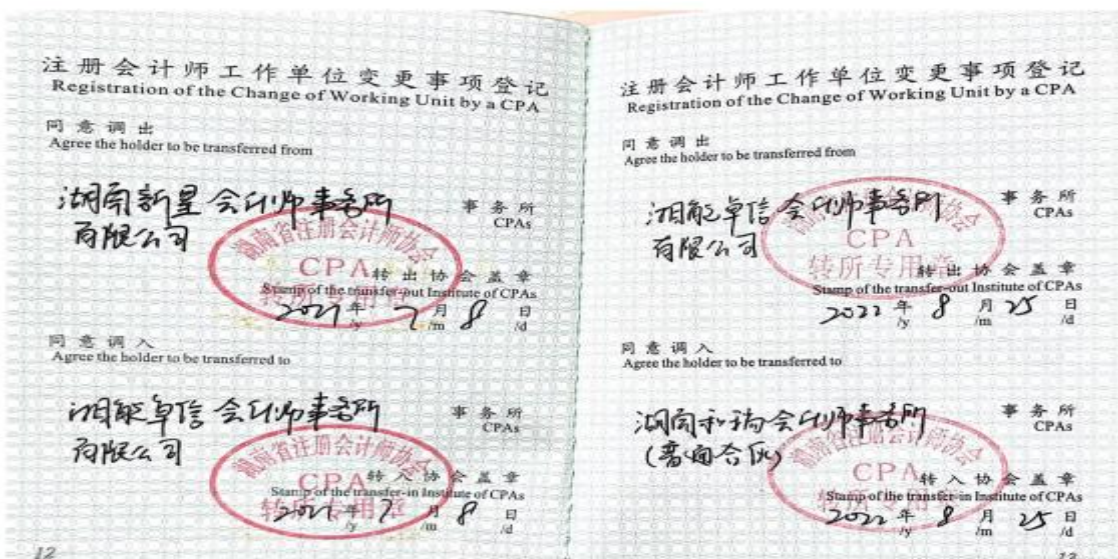 注册会计师工作单位变更事项登记
Registration of the Change of Working Unit by a CPA
同意调出
Agree the holder to be transferred from
湖南新星会计师事务所
有限公司
事务所
CPAs
湖南省注册会计师协会
CPA
转所专用章
转出协会盖章
Stamp of the transfer-out Institute of CPAs
2021年7月8日
/y /m /d
同意调入
Agree the holder to be transferred to
湘能卓信会计师事务所
有限公司
事务所
CPAs
湖南省注册会计师协会
CPA
转所专用章
转入协会盖章
Stamp of the transfer-in Institute of CPAs
2021年7月8日
/y /m /d
12
注册会计师工作单位变更事项登记
Registration of the Change of Working Unit by a CPA
同意调出
Agree the holder to be transferred from
湘能卓信会计师事务所
有限公司
事务所
CPAs
湖南省注册会计师协会
CPA
转所专用章
转出协会盖章
Stamp of the transfer-out Institute of CPAs
2022年8月25日
/y /m /d
同意调入
Agree the holder to be transferred to
湖南和瑞会计师事务所
(普通合伙)
事务所
CPAs
湖南省注册会计师协会
CPA
转所专用章
转入协会盖章
Stamp of the transfer-in Institute of CPAs
2022年8月25日
/y /m /d
13